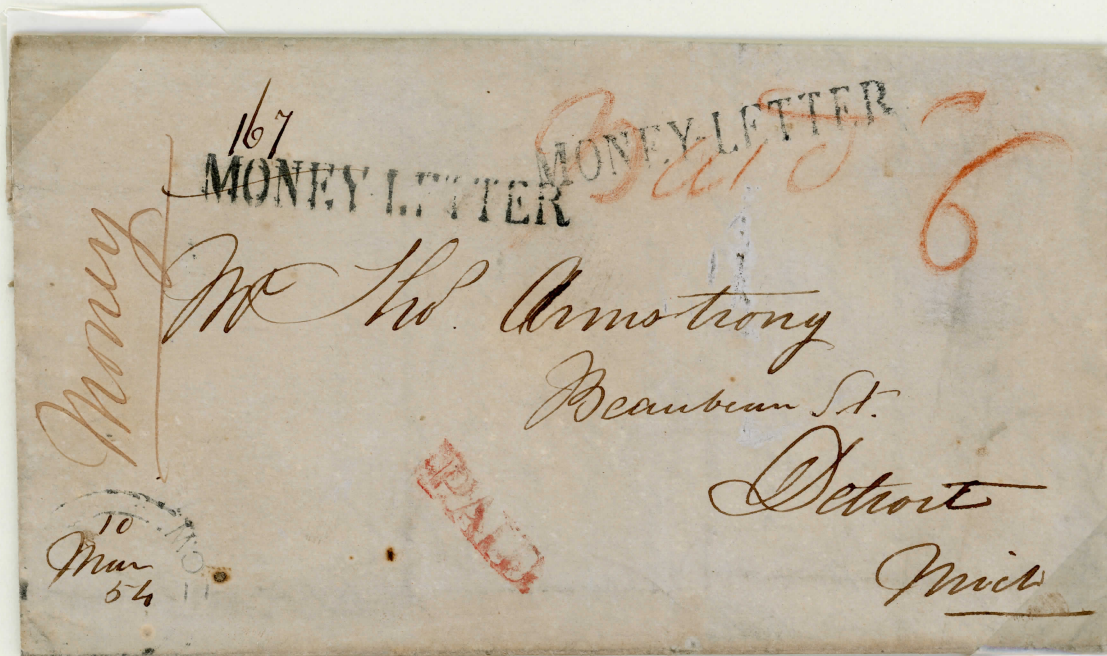 167
MONEY-LETTER
MONEY-LETTER
Paid
6
Money
Mr Thos. Armstrong
Beaubien St.
Detroit
Mich
PAID
10
Mar
54